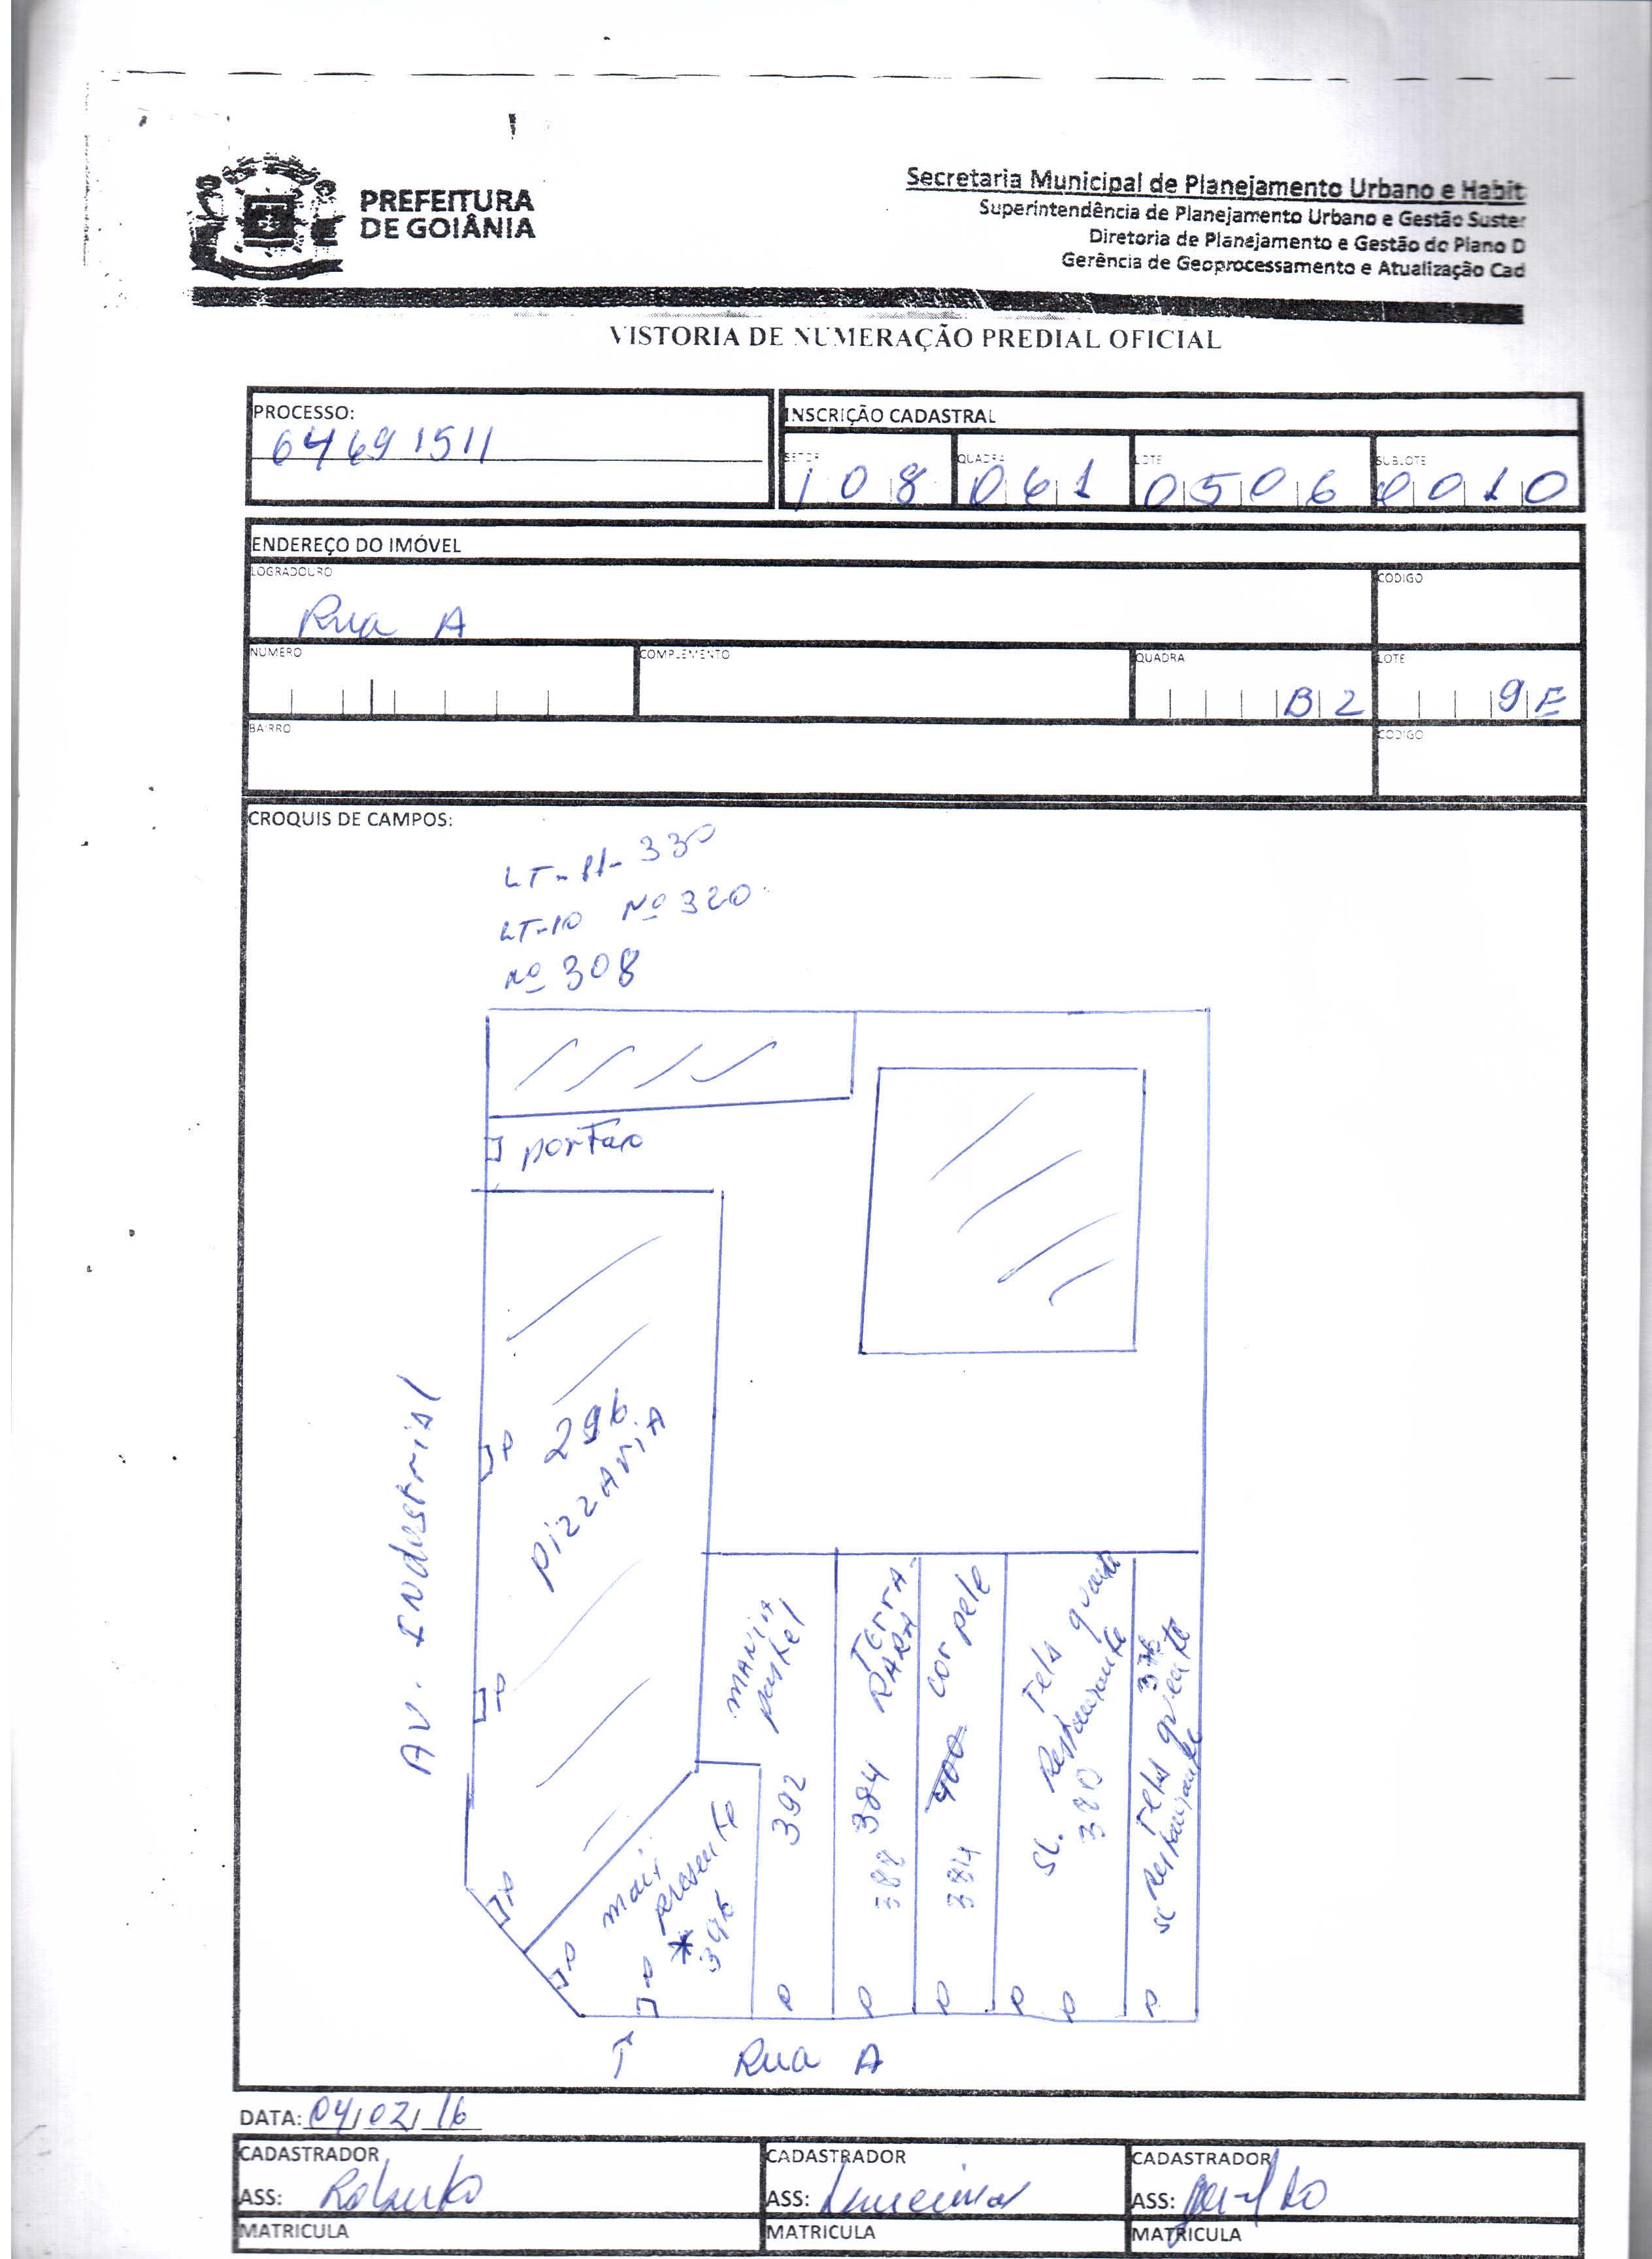 PREFEITURA
DE GOIÂNIA
Secretaria Municipal de Planejamento Urbano e Habit
Superintendência de Planejamento Urbano e Gestão Suster
Diretoria de Planejamento e Gestão do Plano D
Gerência de Geoprocessamento e Atualização Cad
VISTORIA DE NUMERAÇÃO PREDIAL OFICIAL
PROCESSO:
64691511
INSCRIÇÃO CADASTRAL
SETOR QUADRA LOTE SUBLOTE
108 061 0506 0010
ENDEREÇO DO IMÓVEL
LOGRADOURO CODIGO
Rua A
NUMERO COMPLEMENTO QUADRA LOTE
B2 9E
BAIRRO CODIGO
CROQUIS DE CAMPOS:
LT-11-330
LT-10 Nº 320
Nº 308
portao
Av. Industrial
296
pizzaria
mania
pastel
392
Terra
Rara
384
388
cor pele
400
384
Tels quente
Restaurante
SL.
380
376
Tels quente
SL Restaurante
mais
presente
* 396
Rua A
DATA: 04/02/16
CADASTRADOR CADASTRADOR CADASTRADOR
ASS: Roberto ASS: ASS:
MATRICULA MATRICULA MATRICULA